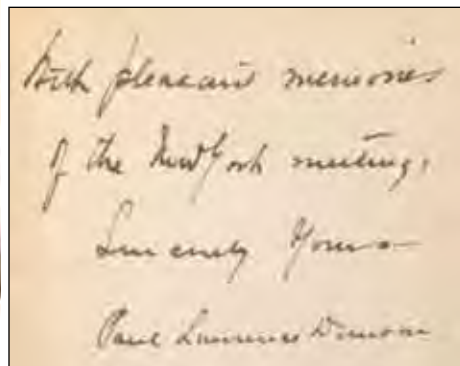 With pleasant memories
of the New York meeting,
Sincerely Yours
Paul Laurence Dunbar